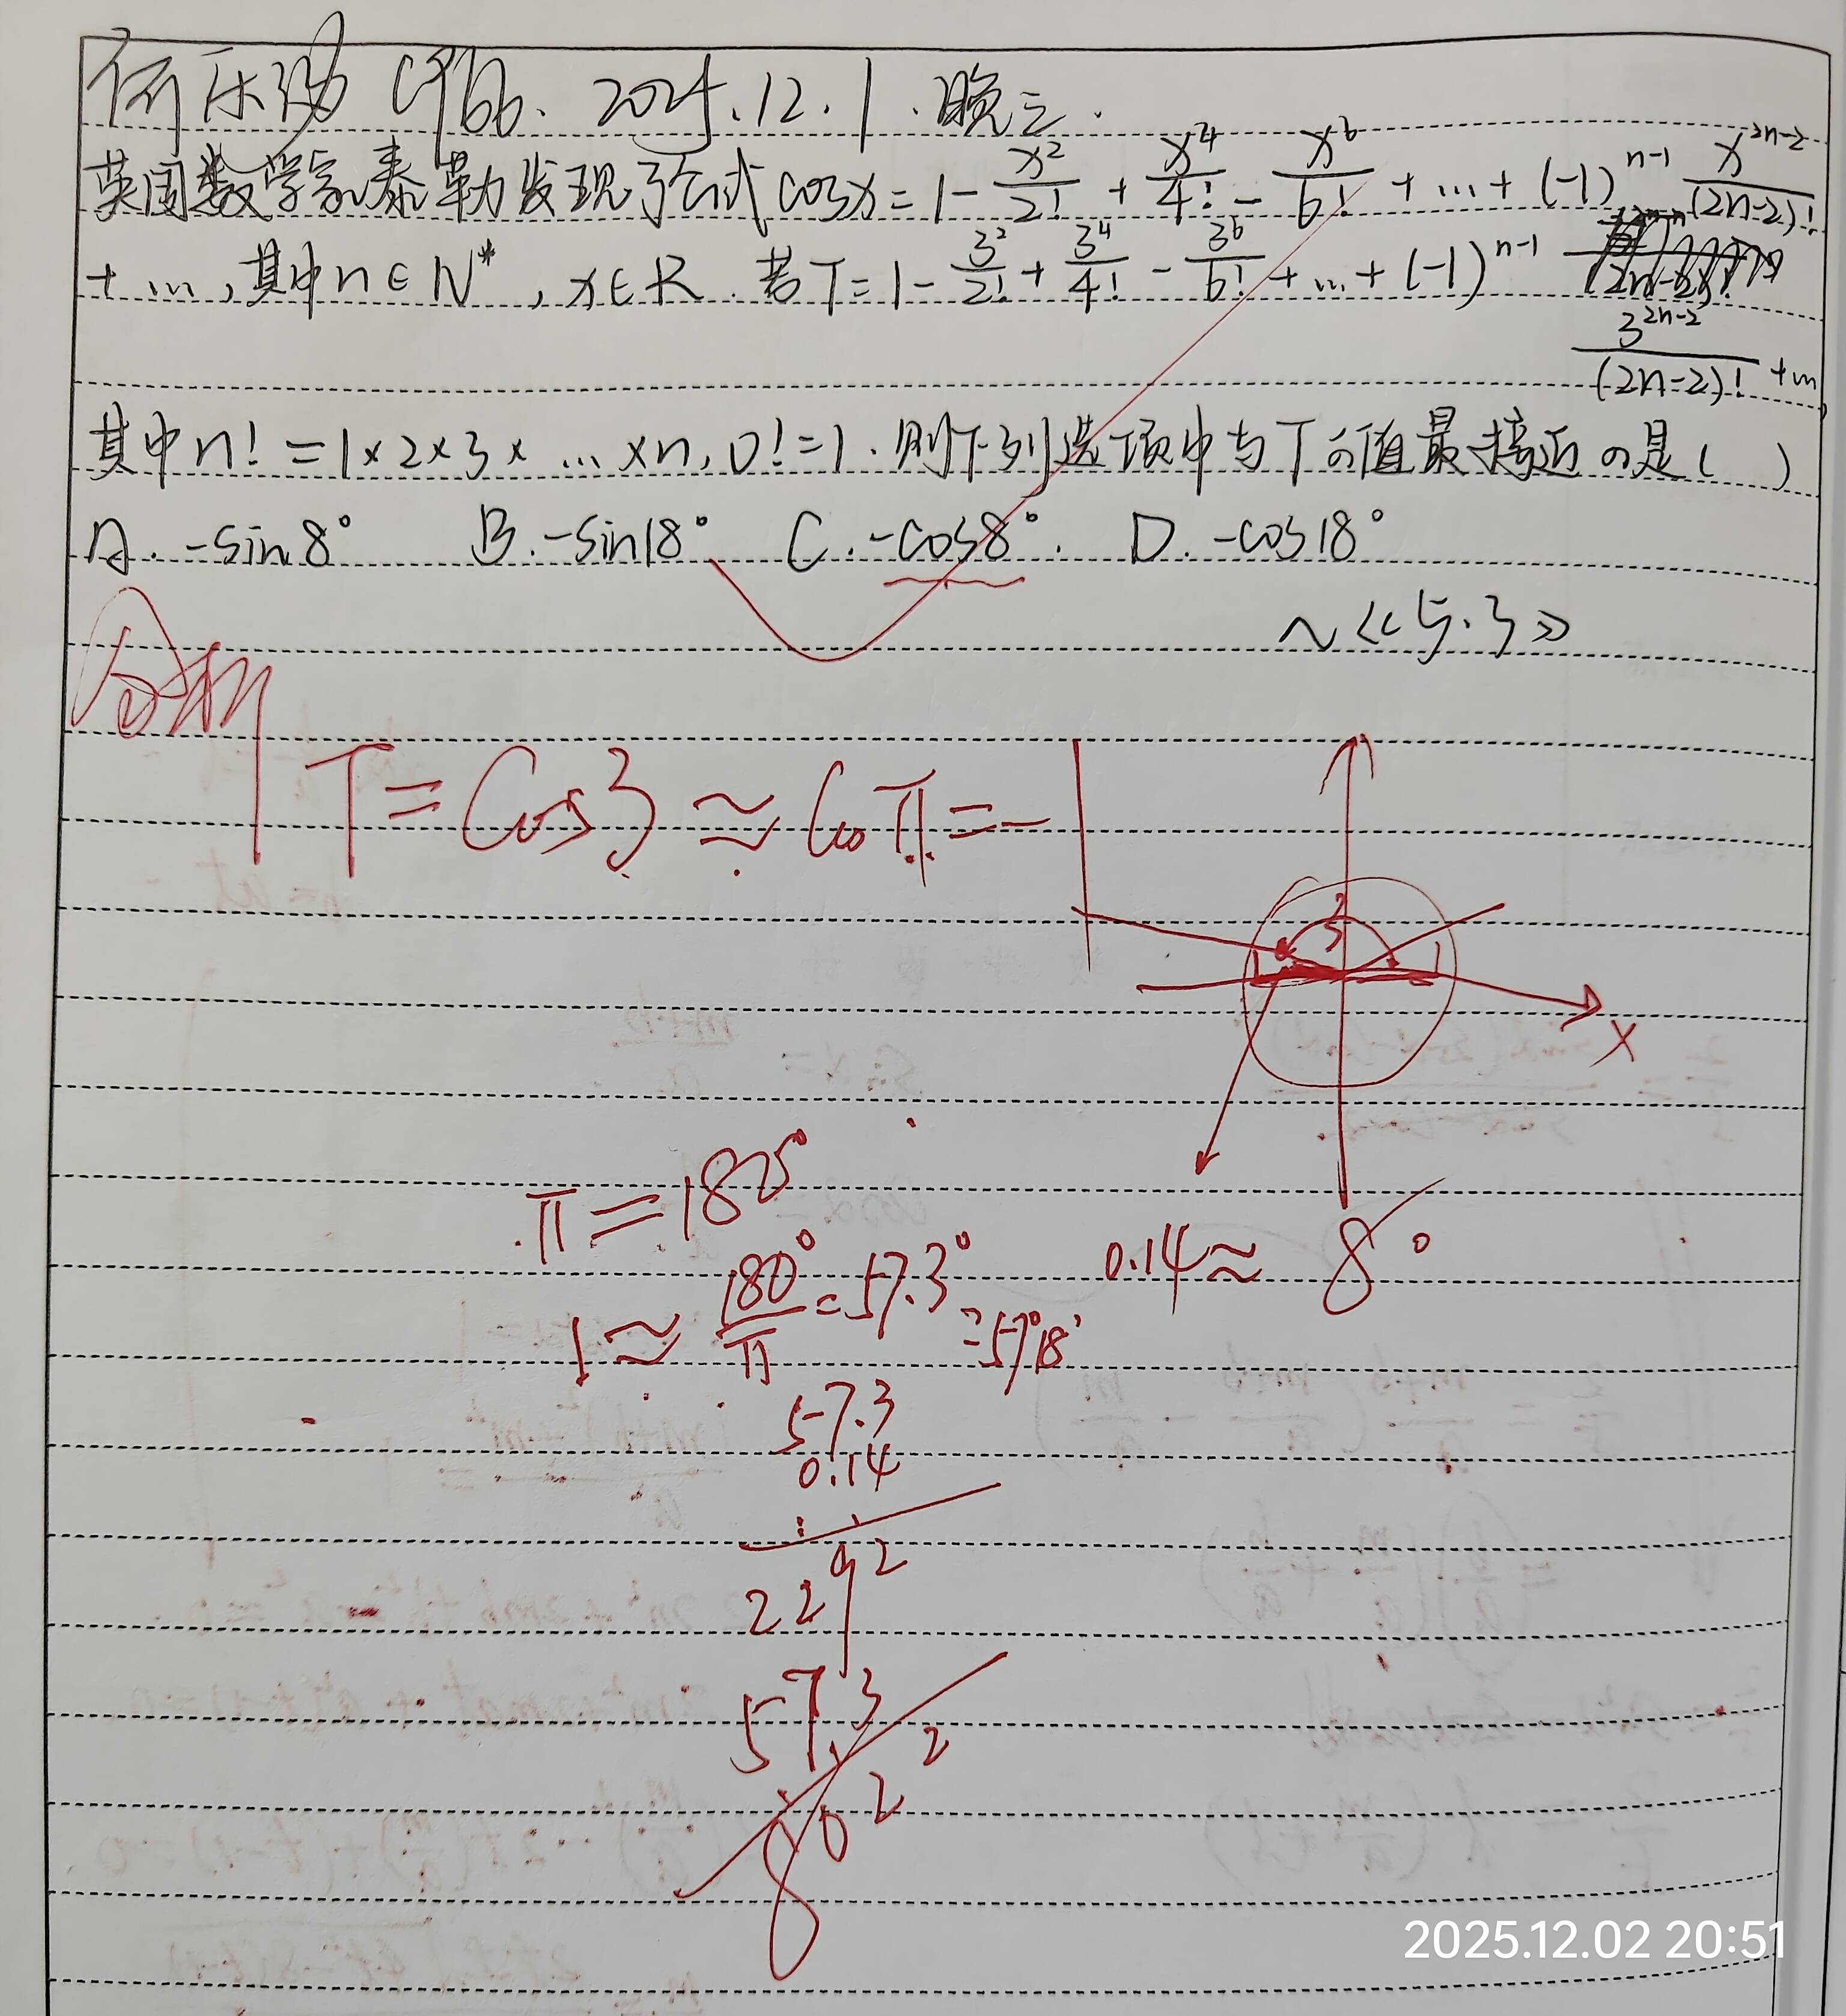 2025.12.1.晚三.
英国数学家泰勒发现了公式cosx=1-x²/2!+x⁴/4!-x⁶/6!+...+(-1)^{n-1} x^{2n-2}/(2n-2)!
+...,其中n∈N*,x∈R.若T=1-3²/2!+3⁴/4!-3⁶/6!+...+(-1)^{n-1}
3^{2n-2}/(2n-2)!+...
其中n!=1×2×3×...×n,0!=1.则下列选项中与T的值最接近的是( )
A.-sin8° B.-sin18° C.-cos8°. D.-cos18°
分析
T=Cos3≈Cosπ=-1
3
x
π=180°
1≈180°/π=57.3°=57°18'
0.14≈8°
57.3
0.14
2292
573
8022
2025.12.02 20:51